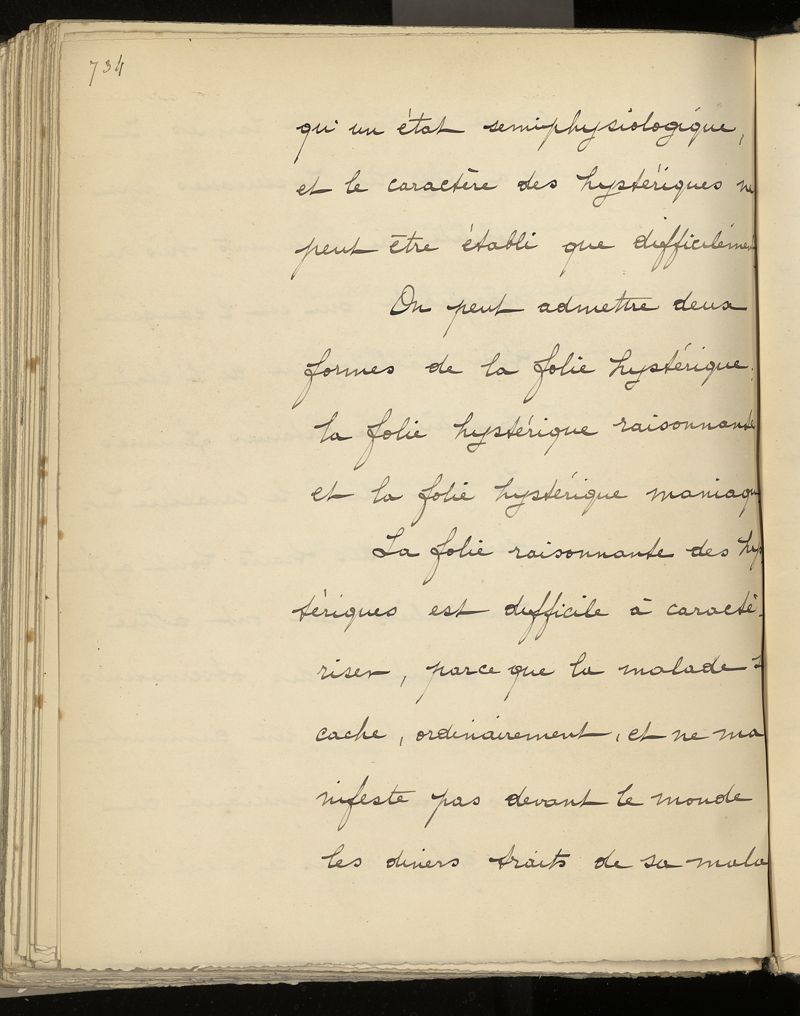 734
qu'un état semiphysiologique,
et le caractère des hystériques ne
peut être établi que difficilement
On peut admettre deux
formes de la folie hystérique.
la folie hystérique raisonnante
et la folie hystérique maniaqu
La folie raisonnante des hys
tériques est difficile à caracté-
riser, parce que la malade
cache, ordinairement, et ne ma
nifeste pas devant le monde
les divers traits de sa mala